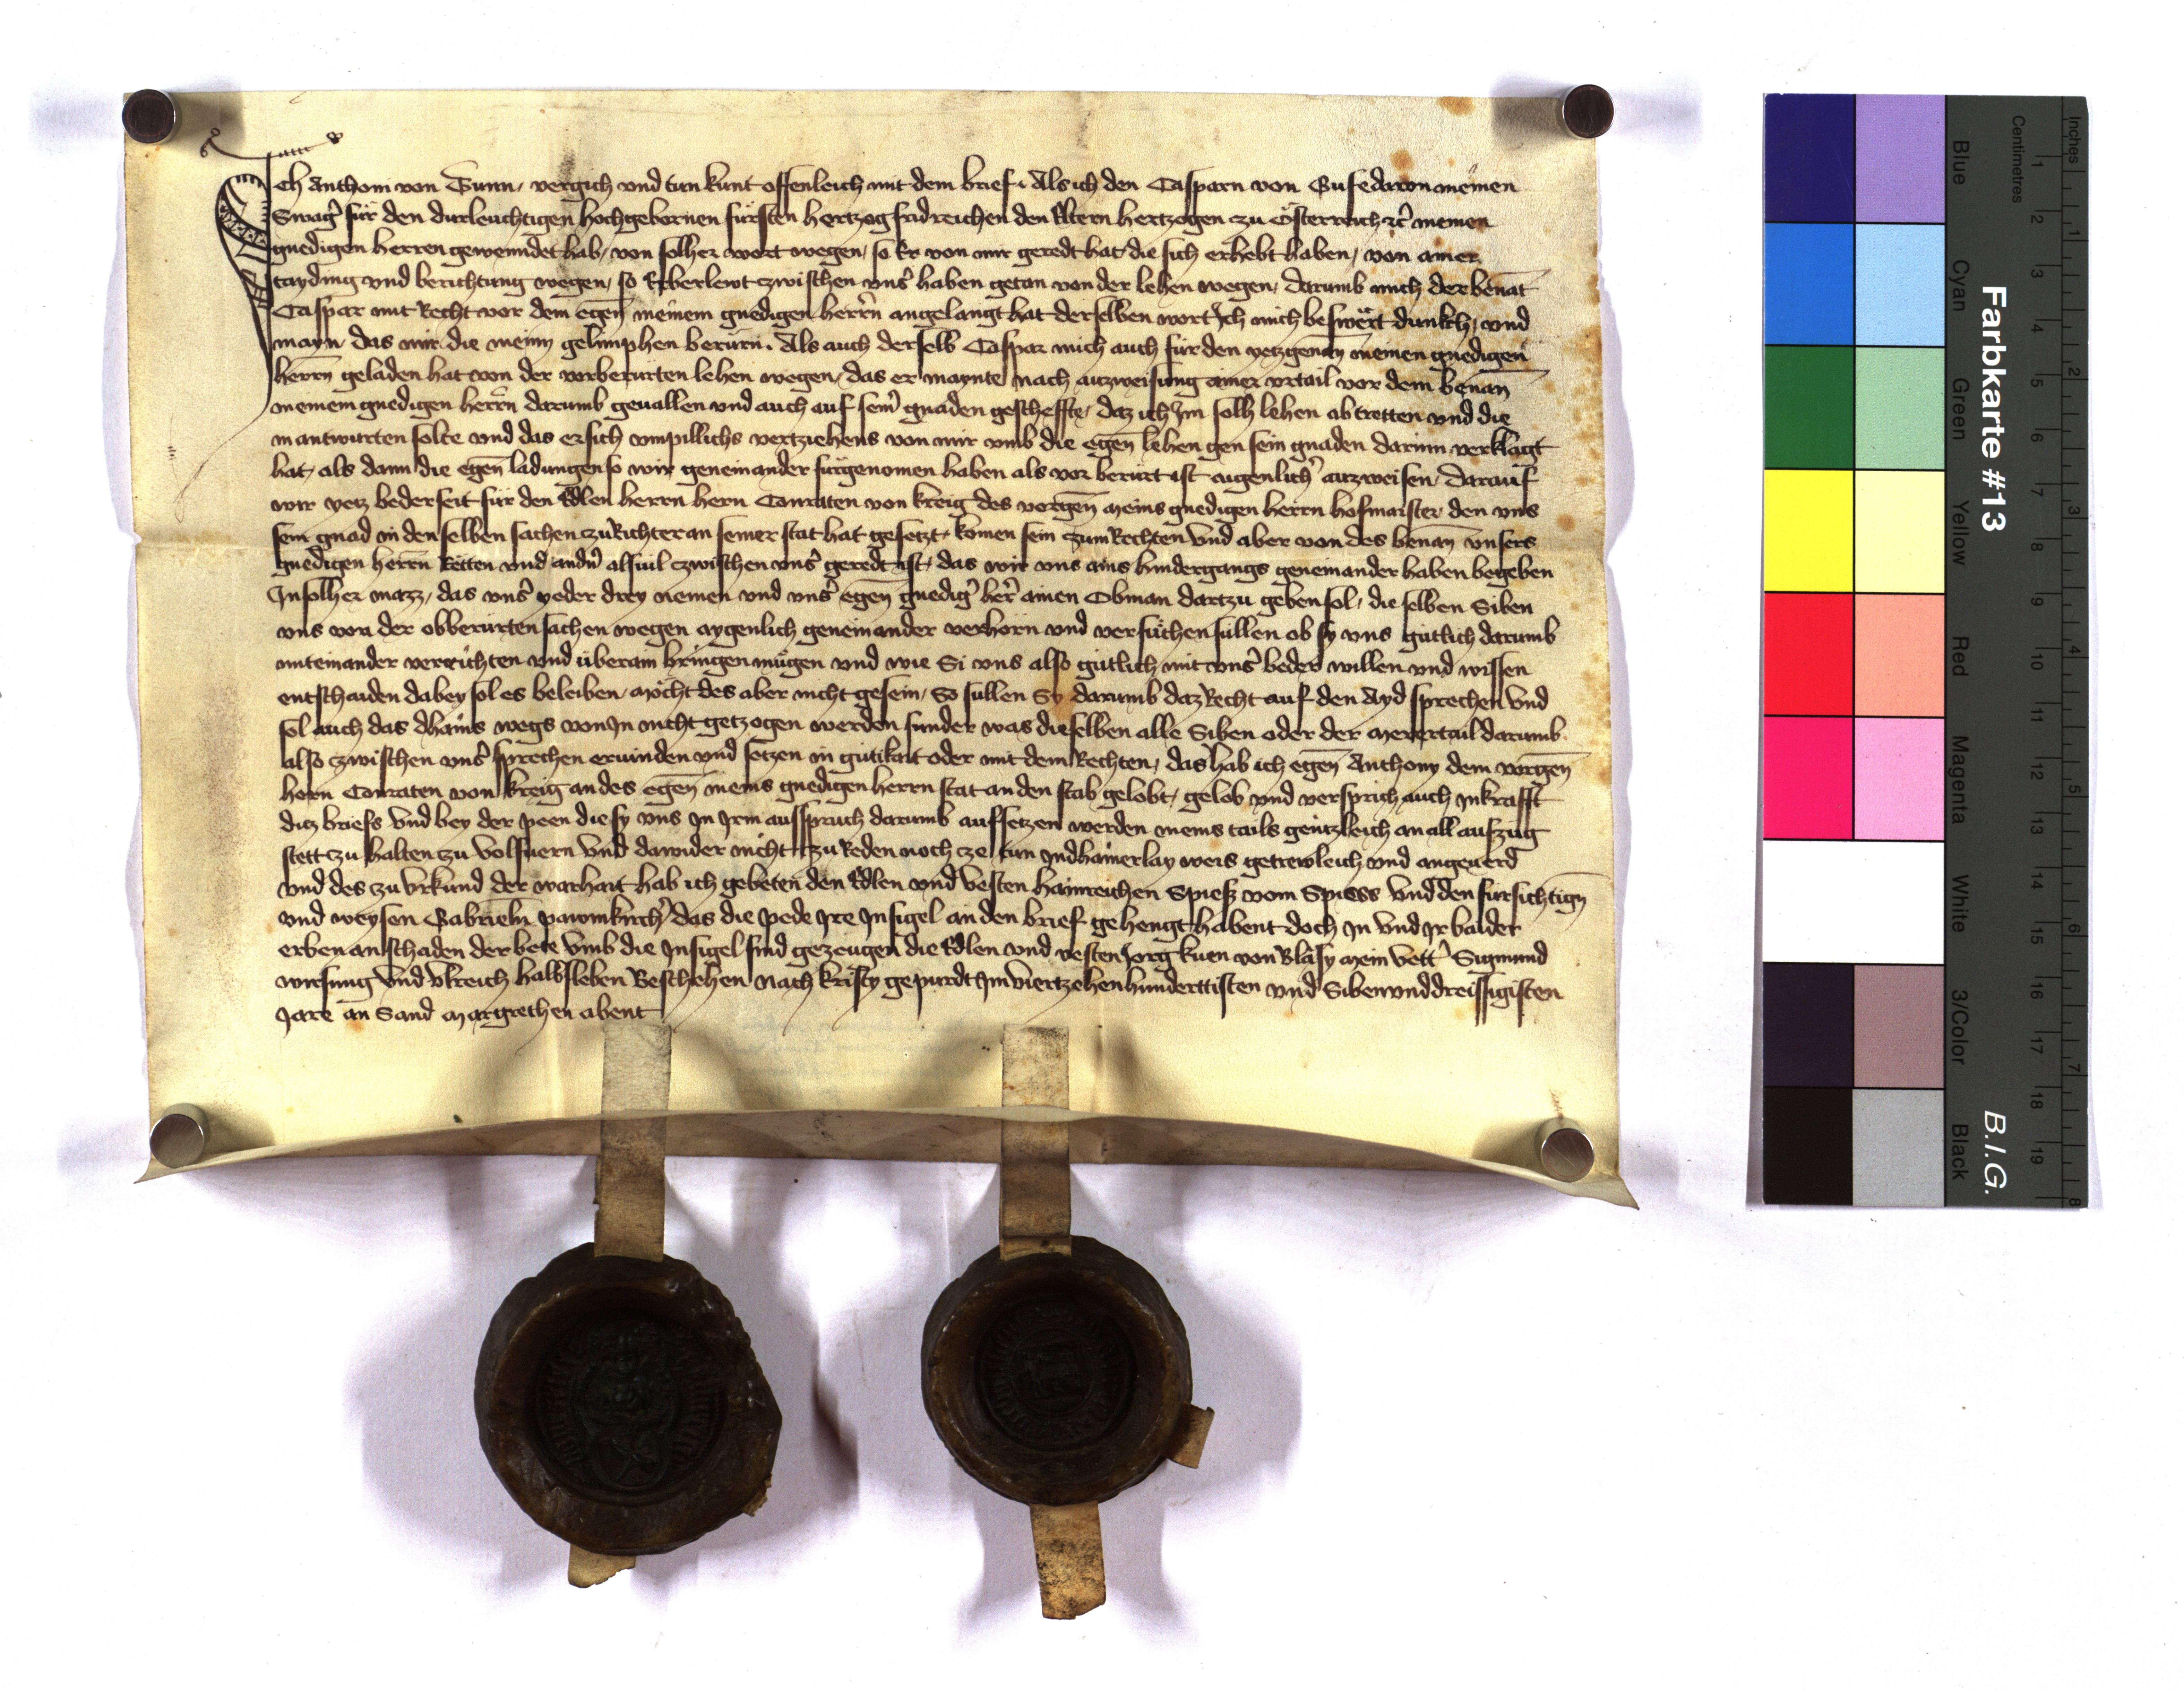 Ich Anthom von Tunn, vergich vnd tun kunt offenleich mit dem brief. Als ich den Casparn von Gufedawn meinen
Swag̉ für den durleuchtigen hochgebornen fürsten hertzog fridreichen den Eltern hertzogen zu Österreich ꝛc̉ meinen
gnedigen herren gewenndet hab, von solher wort wegen, so Er von mir geredt hat die sich erhebt haben, von ainer
tayding vnd berichtung wegen, so Erberlewt zwischen vns̉ haben getan von der lehen wegen, darumb mich der benāt
Caspar mit Recht vor dem egen̄ meinem gnedigen herrn̄ angelangt hat derselben wort Ich mich beswërt dunkch, vnd
mayn das mir die meinn gelimphen berürn. Als auch derselb Caspar mich auch für den yetzgenan̄ meinen gnedigen
herrn̄ geladen hat von der vorberürten lehen wegen, das er maynte nach auzweisung ainer vrtail vor dem benan̄
meinem gnedigen herrn̄ darumb geuallen vnd auch auf sein̉ gnaden gescheffte, daz ich Im solh lehen abtretten vnd die
in antwurten solte vnd das er sich vmpillichs vertziehens von mir vmb die egen̄ lehen gen sein gnaden darinn verklagt
hat, als dann die egen̄ ladungen so wir geneinander fürgenomen haben als vor berürt ist aigenlich̉ auzweisen, darauf
wir yetz bederseit für den Edlen herrn hern Conraten von kreig des vorgen̄ meins gnedigen herrn hofmaister den vns
sein gnad in den selben sachen zu Richter an seiner stat hat gesetzt, komen sein zum Rechten Vnd aber von des benan̄ vnsers
gnedigen herrn̄ Retten vnd andn̉ alsuil zwischen vns̉ geredt ist, das wir vns ains hindergangs geneinander haben begeben
In solher mazz, das vns̉ yeder drey nemen vnd vns̉ egen̄ gnedig̉ her̉ ainen Obman dartzu geben sol, die selben Siben
vns von der obberürten sachen wegen aygenlich geneinander verhorn vnd versüchen süllen ob sy vns gütlich darumb
miteinander verrichten vnd überain bringen mügen vnd wie Si vns also gütlich mit vns̉ beder willen vnd wissen
entschaiden dabey sol es beleiben, möcht des aber nicht gesein, So sullen Sy darumb daz Recht auf den Ayd sprechen Vnd
sol auch das dhains wegs von In nicht getzogen werden sunder was dieselben alle Siben oder der merertail darumb
also zwischen vns̉ sprechen erwinden vnd setzen in gütikait oder mit dem Rechten, das hab ich egen̄ Anthony dem vorgen̄
hern Conraten von kreig an des egen̄ meins gnedigen herrn stat an den stab gelobt, gelob vnd versprich auch in krafft
ditz briefs Vnd bey der peen die sy vns in Irm ausspruch darumb aufsetzen werden meins tails gentzleich an all aufzüg
stett zu halten zu volfuern Vnd dawider nicht zu Reden noch ze tun Indhainerlay weis getrewleich vnd angeuerd
Vnd des zu Vrkund der warhait hab ich gebeten den Edlen vnd vesten hainreichen Spiess vom Spiess Vnd den fursichtign̄
vnd weysen Gabrieln pawmkirch̉ das die pede Ire Insigel an den brief gehengt habent doch In vnd Ir baider
erben an schaden der bete Vmb die Insigel sind gezeugen die Edlen vnd vesten Jorg kuen von Bläsy mein vett̉ Sigmund
wirsung Vnd Vlreich halbsleben Beschehen Nach kristy gepurdt Im viertzehenhunderttisten vnd Sibenvnddreissigisten
Jare an Sand Margrethen abent
Farbkarte #13
B.I.G.
Blue Cyan Green Yellow Red Magenta White 3/Color Black
Centimetres
1 2 3 4 5 6 7 8 9 10 11 12 13 14 15 16 17 18 19
Inches
1 2 3 4 5 6 7 8